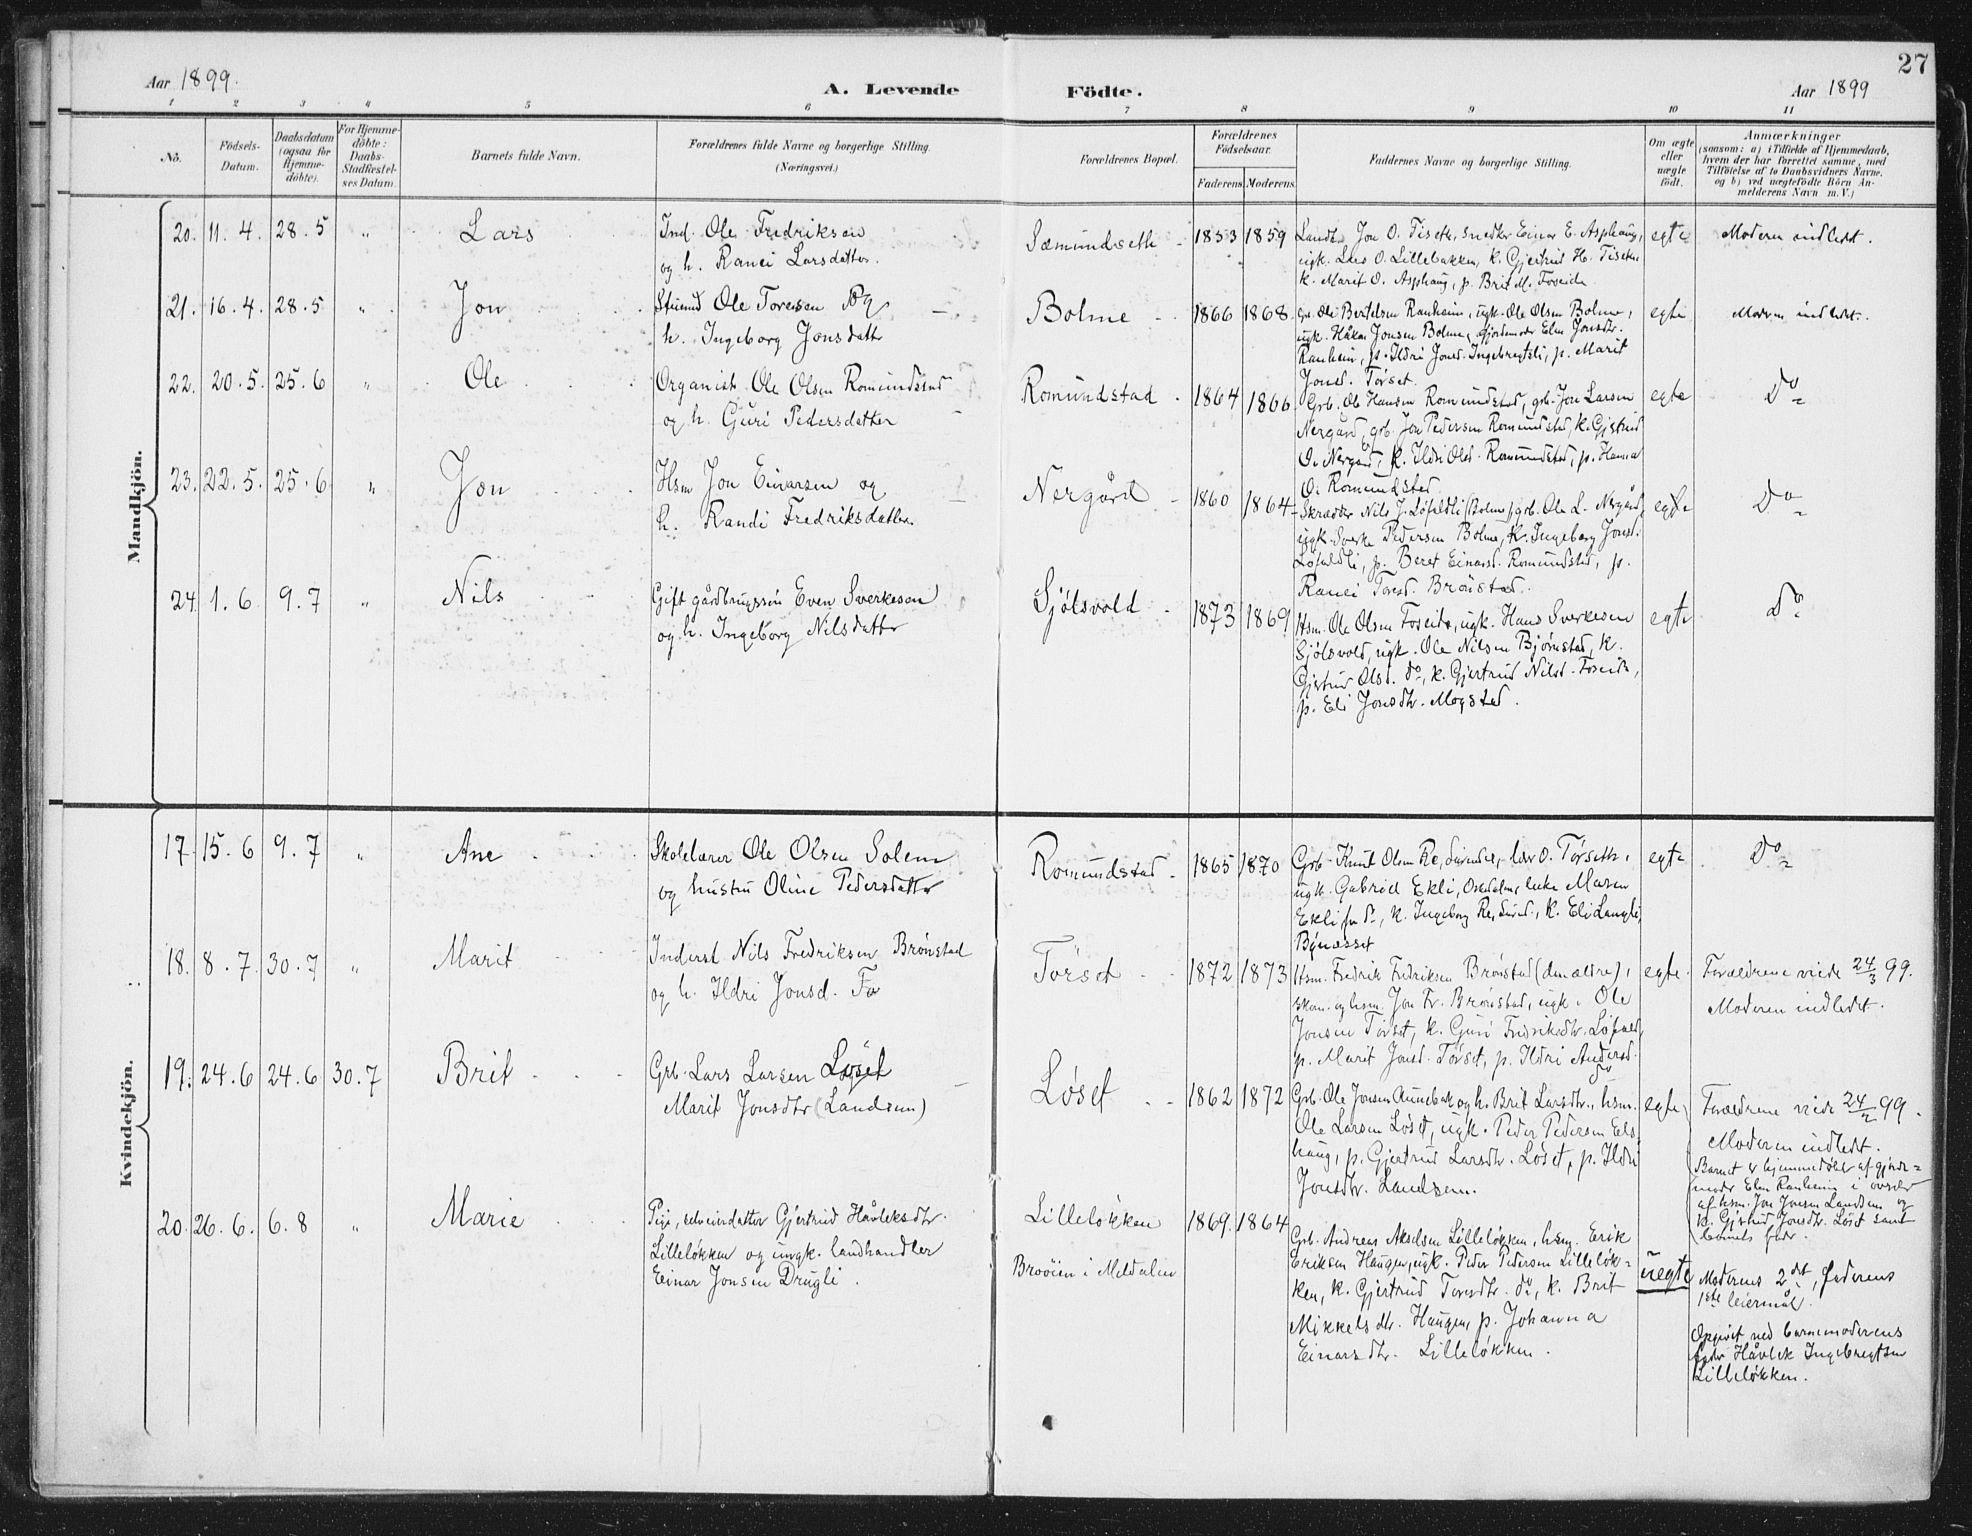 27
Aar 1899.
A. Levende Födte.
Aar 1899
1 2 3 4 5 6 7 8 9 10 11
No.
Födsels-Datum.
Daabsdatum (ogsaa for Hjemme-döbte).
For Hjemme-döbte: Daabs-Stadfæstel-ses Datum.
Barnets fulde Navn.
Forældrenes fulde Navne og borgerlige Stilling.
(Næringsvei.)
Forældrenes Bopæl.
Forældrenes Födselsaar.
Faderens Moderens
Faddernes Navne og borgerlige Stilling.
Om ægte eller uægte födt.
Anmærkninger
(saasom: a) i Tilfælde af Hjemmedaab,
hvem der har forrettet samme, med
Tilföielse af to Daabsvidners Navne,
og b) ved uægtefödte Börn An-
melderens Navn m. V.)
Mandkjön.
20. 11. 4. 28. 5 " Lars
Ind. Ole Fredriksen
og h. Ranei Larsdatter
Sæmundseth 1853 1859
Landh. Jon O. Tiseth, snedker Einar E. Asphaug,
ugk. Lars O. Lillebakken, k. Gjertrud H. Tiseth
k. Marit O. Asphaug, p. Brit M. Foseide
egte Moderen indledet.
21. 16. 4. 28. 5 " Jon
Ole Toresen og
h. Ingeborg Jonsdatter
Bolme 1866 1868
Ole Bertelsen Ranheim, ugk. Ole Olsen Bolme,
ugk. Håkon Jonsen Bolme, gjordemoder Elen Jonsdtr.
Ranheim, p. Ildri Jonsd. Ingebregtsli, p. Marit
Jonsd. Tørset.
egte Moderen indledet.
22. 20. 5. 25. 6 " Ole
Organist Ole Olsen Romundstad
og h. Guri Pedersdatter
Romundstad 1864 1866
Grb. Ole Hansen Romundstad, grb. Jon Larsen
Nergård, grb. Jon Pedersen Romundstad, k. Gjertrud
O. Nergård, k. Ildri Olsd. Romundstad, p. Hanna
O. Romundstad
egte Do
23. 22. 5. 25. 6 " Jon
Hsm Jon Einarsen og
h. Randi Fredriksdatter
Nergård 1860 1864
Skrædder Nils J. Løfaldli (Bolme), grb. Ole L. Nergård,
ugk. Sverke Pedersen Bolme, k. Ingeborg Jonsd.
Løfaldli, p. Beret Einarsd. Romundstad, p.
Ranei Toresd. Brønstad.
egte Do
24. 1. 6 9. 7 " Nils
Gift gårdbrugssøn Even Sverkesen
og h. Ingeborg Nilsdatter
Sjølsvold 1873 1869
Hsm. Ole Olsen Foseide, ugk. Hans Sverkesen
Sjølsvold, ugk. Ole Nilsen Bjørnstad, k.
Gjertrud Olsd. do, k. Gjertrud Nilsd. Foseide,
p. Eli Jonsdtr. Mogstad.
egte Do
Kvindekjön.
17. 15. 6 9. 7 " Ane
Skolelærer Ole Olsen Solem
og hustru Oline Pedersdatter
Romundstad 1865 1870
Grb. Knut Olsen Re, Surendal, lær O. Tørseth,
ugk. Gabriel Ekli, Orkedalen, enke Maren
Ekli fra do, k. Ingeborg Re, Surend., k. Eli Langli,
Bynesset
egte Do
18. 8. 7. 30. 7 " Marit
Inderst Nils Fredriksen Brønstad
og h. Ildri Jonsd. Fo
Tørset 1872 1873
Hsm. Fredrik Fredriksen Brønstad (den ældre),
skom. og hsm. Jon Fr. Brønstad, ugk. Ole
Jonsen Tørset, k. Guri Fredriksdtr. Løfald,
p. Marit Jonsd. Tørset, p. Ildri Andersd.
do
egte. Forældrene viede 24/3 99.
Moderen indledet.
19. 24. 6 24. 6 30. 7 Brit
Grb. Lars Larsen Løset
Marit Jonsdtr (Landsem)
Løset 1862 1872
Grb. Ole Jonsen Aunebak og h. Brit Larsdtr., hsm.
Ole Larsen Løset, ugk. Peder Pedersen Els-
haug, p. Gjertrud Larsdtr. Løset, p. Ildri
Jonsdtr. Landsem.
egte Forældrene viede 24/2 99.
Moderen indledet.
Barnet er hjemmedøbt af gjorde-
moder Elen Ranheim i overvær
af hsm. Jon Jonsen Landsem og
k. Gjertrud Jonsdtr. Løset samt
barnets fader.
20. 26. 6. 6. 8 " Marie
Pige, selveierdatter Gjertrud Håvleksdtr.
Lilleløkken og ungk. landhandler
Einar Jonsen Drugli.
Lilleløkken 1869. 1864
Broøien i Meldalen
Grb. Andreas Akselsen Lilleløkken, hsm. Erik
Eriksen Haugen, ugk. Peder Pedersen Lilleløk-
ken, k. Gjertrud Toresdtr. do, k. Brit
Mikkelsdtr. Haugen, p. Johanna
Einarsdtr. Lilleløkken.
uegte Moderens 2det, faderens
1ste leiermål.
Opgivet ved barnemoderens
fader Håvlek Ingebregtsen
Lilleløkken.